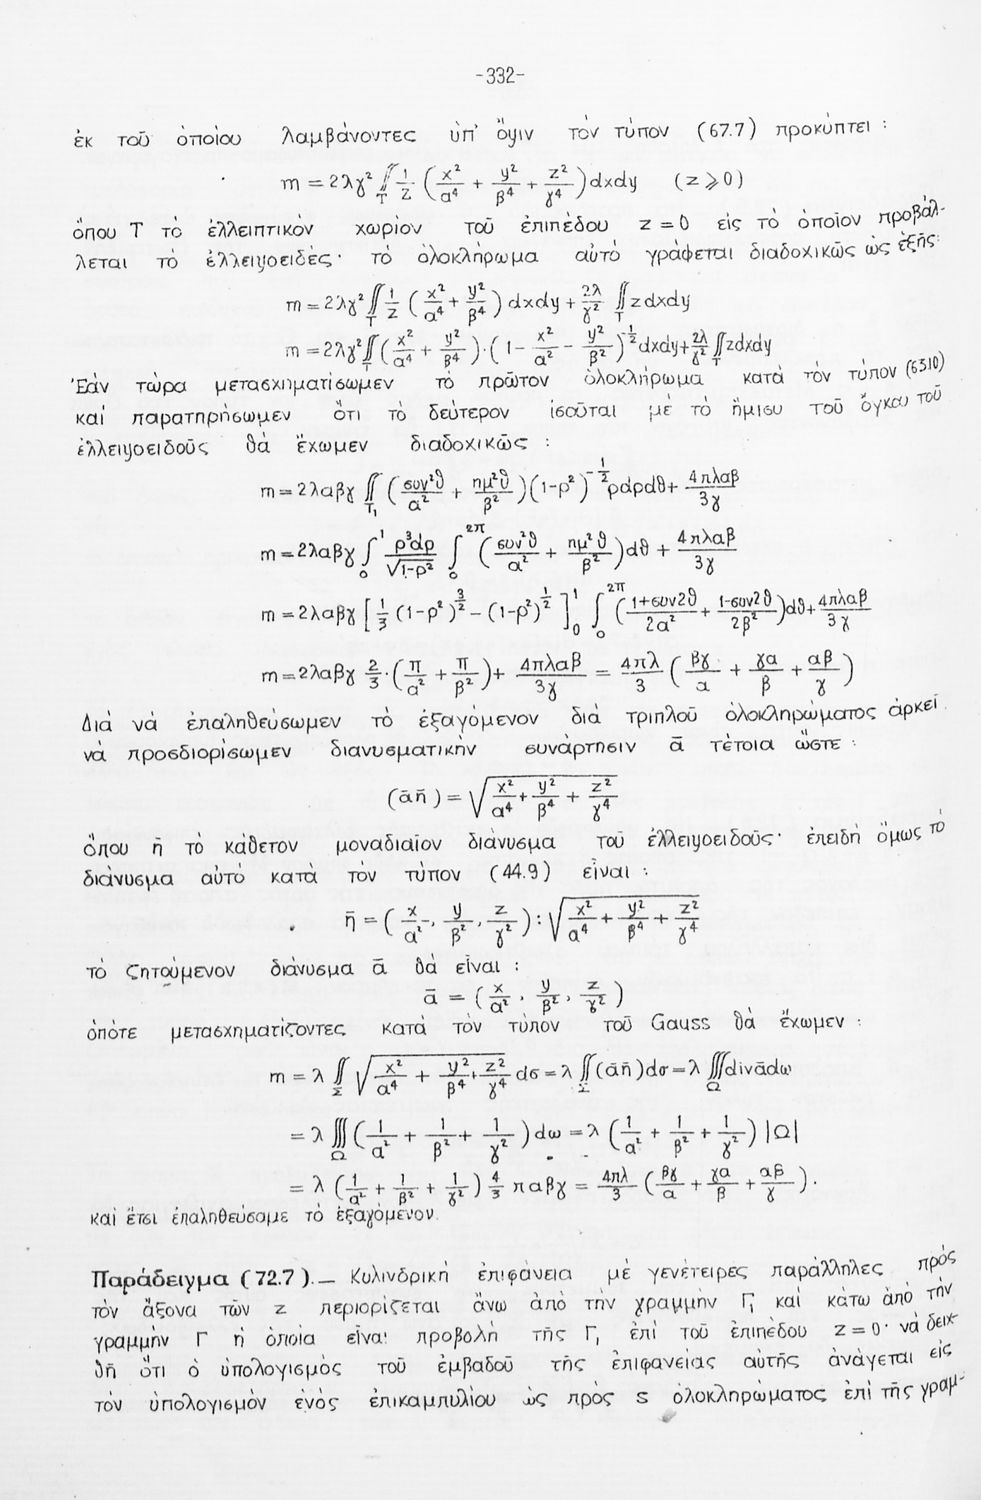 -332-
ἐκ τοῦ ὁποίου λαμβάνοντες ὑπ' ὄψιν τόν τύπον (67.7) προκύπτει :
m = 2λγ² ∬_T 1/z (x²/α⁴ + y²/β⁴ + z²/γ⁴) dxdy (z ⩾ 0)
ὅπου T τό ἐλλειπτικόν χωρίον τοῦ ἐπιπέδου z = 0 εἰς τό ὁποῖον προβάλ-
λεται τό ἐλλειψοειδές· τό ὁλοκλήρωμα αὐτό γράφεται διαδοχικῶς ὡς ἑξῆς:
m = 2λγ² ∬_T 1/z (x²/α⁴ + y²/β⁴) dxdy + 2λ/γ² ∬_T z dxdy
m = 2λγ² ∬_T (x²/α⁴ + y²/β⁴)·(1 - x²/α² - y²/β²)^{-1/2} dxdy + 2λ/γ² ∬_T zdxdy
Ἐάν τώρα μετασχηματίσωμεν τό πρῶτον ὁλοκλήρωμα κατά τόν τύπον (6310)
καί παρατηρήσωμεν ὅτι τό δεύτερον ἰσοῦται μέ τό ἥμισυ τοῦ ὄγκου τοῦ
ἐλλειψοειδοῦς θά ἔχωμεν διαδοχικῶς :
m = 2λαβγ ∬_{T₁} (συν²θ/α² + ημ²θ/β²)(1-ρ²)^{-1/2} ρdρdθ + 4πλαβ/3γ
m = 2λαβγ ∫_0^1 ρ³dρ/√(1-ρ²) ∫_0^{2π} (συν²θ/α² + ημ²θ/β²)dθ + 4πλαβ/3γ
m = 2λαβγ [1/3 (1-ρ²)^{3/2} - (1-ρ²)^{1/2}]_0^1 ∫_0^{2π} (1+συν2θ/2α² + 1-συν2θ/2β²)dθ + 4πλαβ/3γ
m = 2λαβγ 2/3·(π/α² + π/β²) + 4πλαβ/3γ = 4πλ/3 (βγ/α + γα/β + αβ/γ)
Διά νά ἐπαληθεύσωμεν τό ἐξαγόμενον διά τριπλοῦ ὁλοκληρώματος ἀρκεῖ
νά προσδιορίσωμεν διανυσματικήν συνάρτησιν ā τέτοια ὥστε :
(āη̄) = √(x²/α⁴ + y²/β⁴ + z²/γ⁴)
ὅπου η̄ τό κάθετον μοναδιαῖον διάνυσμα τοῦ ἐλλειψοειδοῦς· ἐπειδή ὅμως τό
διάνυσμα αὐτό κατά τόν τύπον (44.9) εἶναι :
η̄ = (x/α², y/β², z/γ²) : √(x²/α⁴ + y²/β⁴ + z²/γ⁴)
τό ζητούμενον διάνυσμα ā θά εἶναι :
ā = (x/α², y/β², z/γ²)
ὁπότε μετασχηματίζοντες κατά τόν τύπον τοῦ Gauss θά ἔχωμεν :
m = λ ∬_Σ √(x²/α⁴ + y²/β⁴ + z²/γ⁴) dσ = λ ∬_Σ (āη̄)dσ = λ ∭_Ω divādω
= λ ∭_Ω (1/α² + 1/β² + 1/γ²) dω = λ (1/α² + 1/β² + 1/γ²) |Ω|
= λ (1/α² + 1/β² + 1/γ²) 4/3 παβγ = 4πλ/3 (βγ/α + γα/β + αβ/γ).
καί ἔτσι ἐπαληθεύσαμε τό ἐξαγόμενον.
Παράδειγμα (72.7).— Κυλινδρική ἐπιφάνεια μέ γενέτειρες παράλληλες πρός
τόν ἄξονα τῶν z περιορίζεται ἄνω ἀπό τήν γραμμήν Γ₁ καί κάτω ἀπό τήν
γραμμήν Γ ἡ ὁποία εἶναι προβολή τῆς Γ₁ ἐπί τοῦ ἐπιπέδου z = 0· νά δειχ-
θῆ ὅτι ὁ ὑπολογισμός τοῦ ἐμβαδοῦ τῆς ἐπιφανείας αὐτῆς ἀνάγεται εἰς
τόν ὑπολογισμόν ἑνός ἐπικαμπυλίου ὡς πρός s ὁλοκληρώματος ἐπί τῆς γραμ-